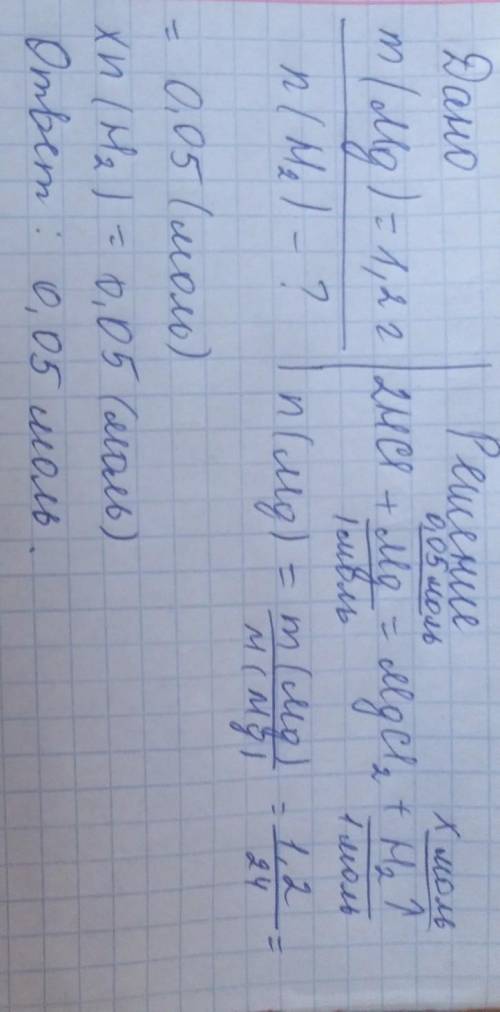 Дано
m(Mg) = 1,2 г
n(H₂) - ?
Решение
0,05 моль x моль
2HCl + Mg = MgCl₂ + H₂↑
1 моль 1 моль
n(Mg) = m(Mg)/M(Mg) = 1,2/24 =
= 0,05 (моль)
xn(H₂) = 0,05 (моль)
Ответ: 0,05 моль.